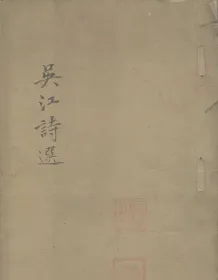 吳江詩選